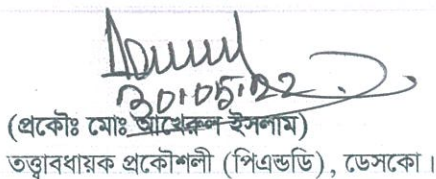 ৩০.০৫.২২
(প্রকৌঃ মোঃ আখেরুল ইসলাম)
তত্ত্বাবধায়ক প্রকৌশলী (পিএন্ডডি), ডেসকো।